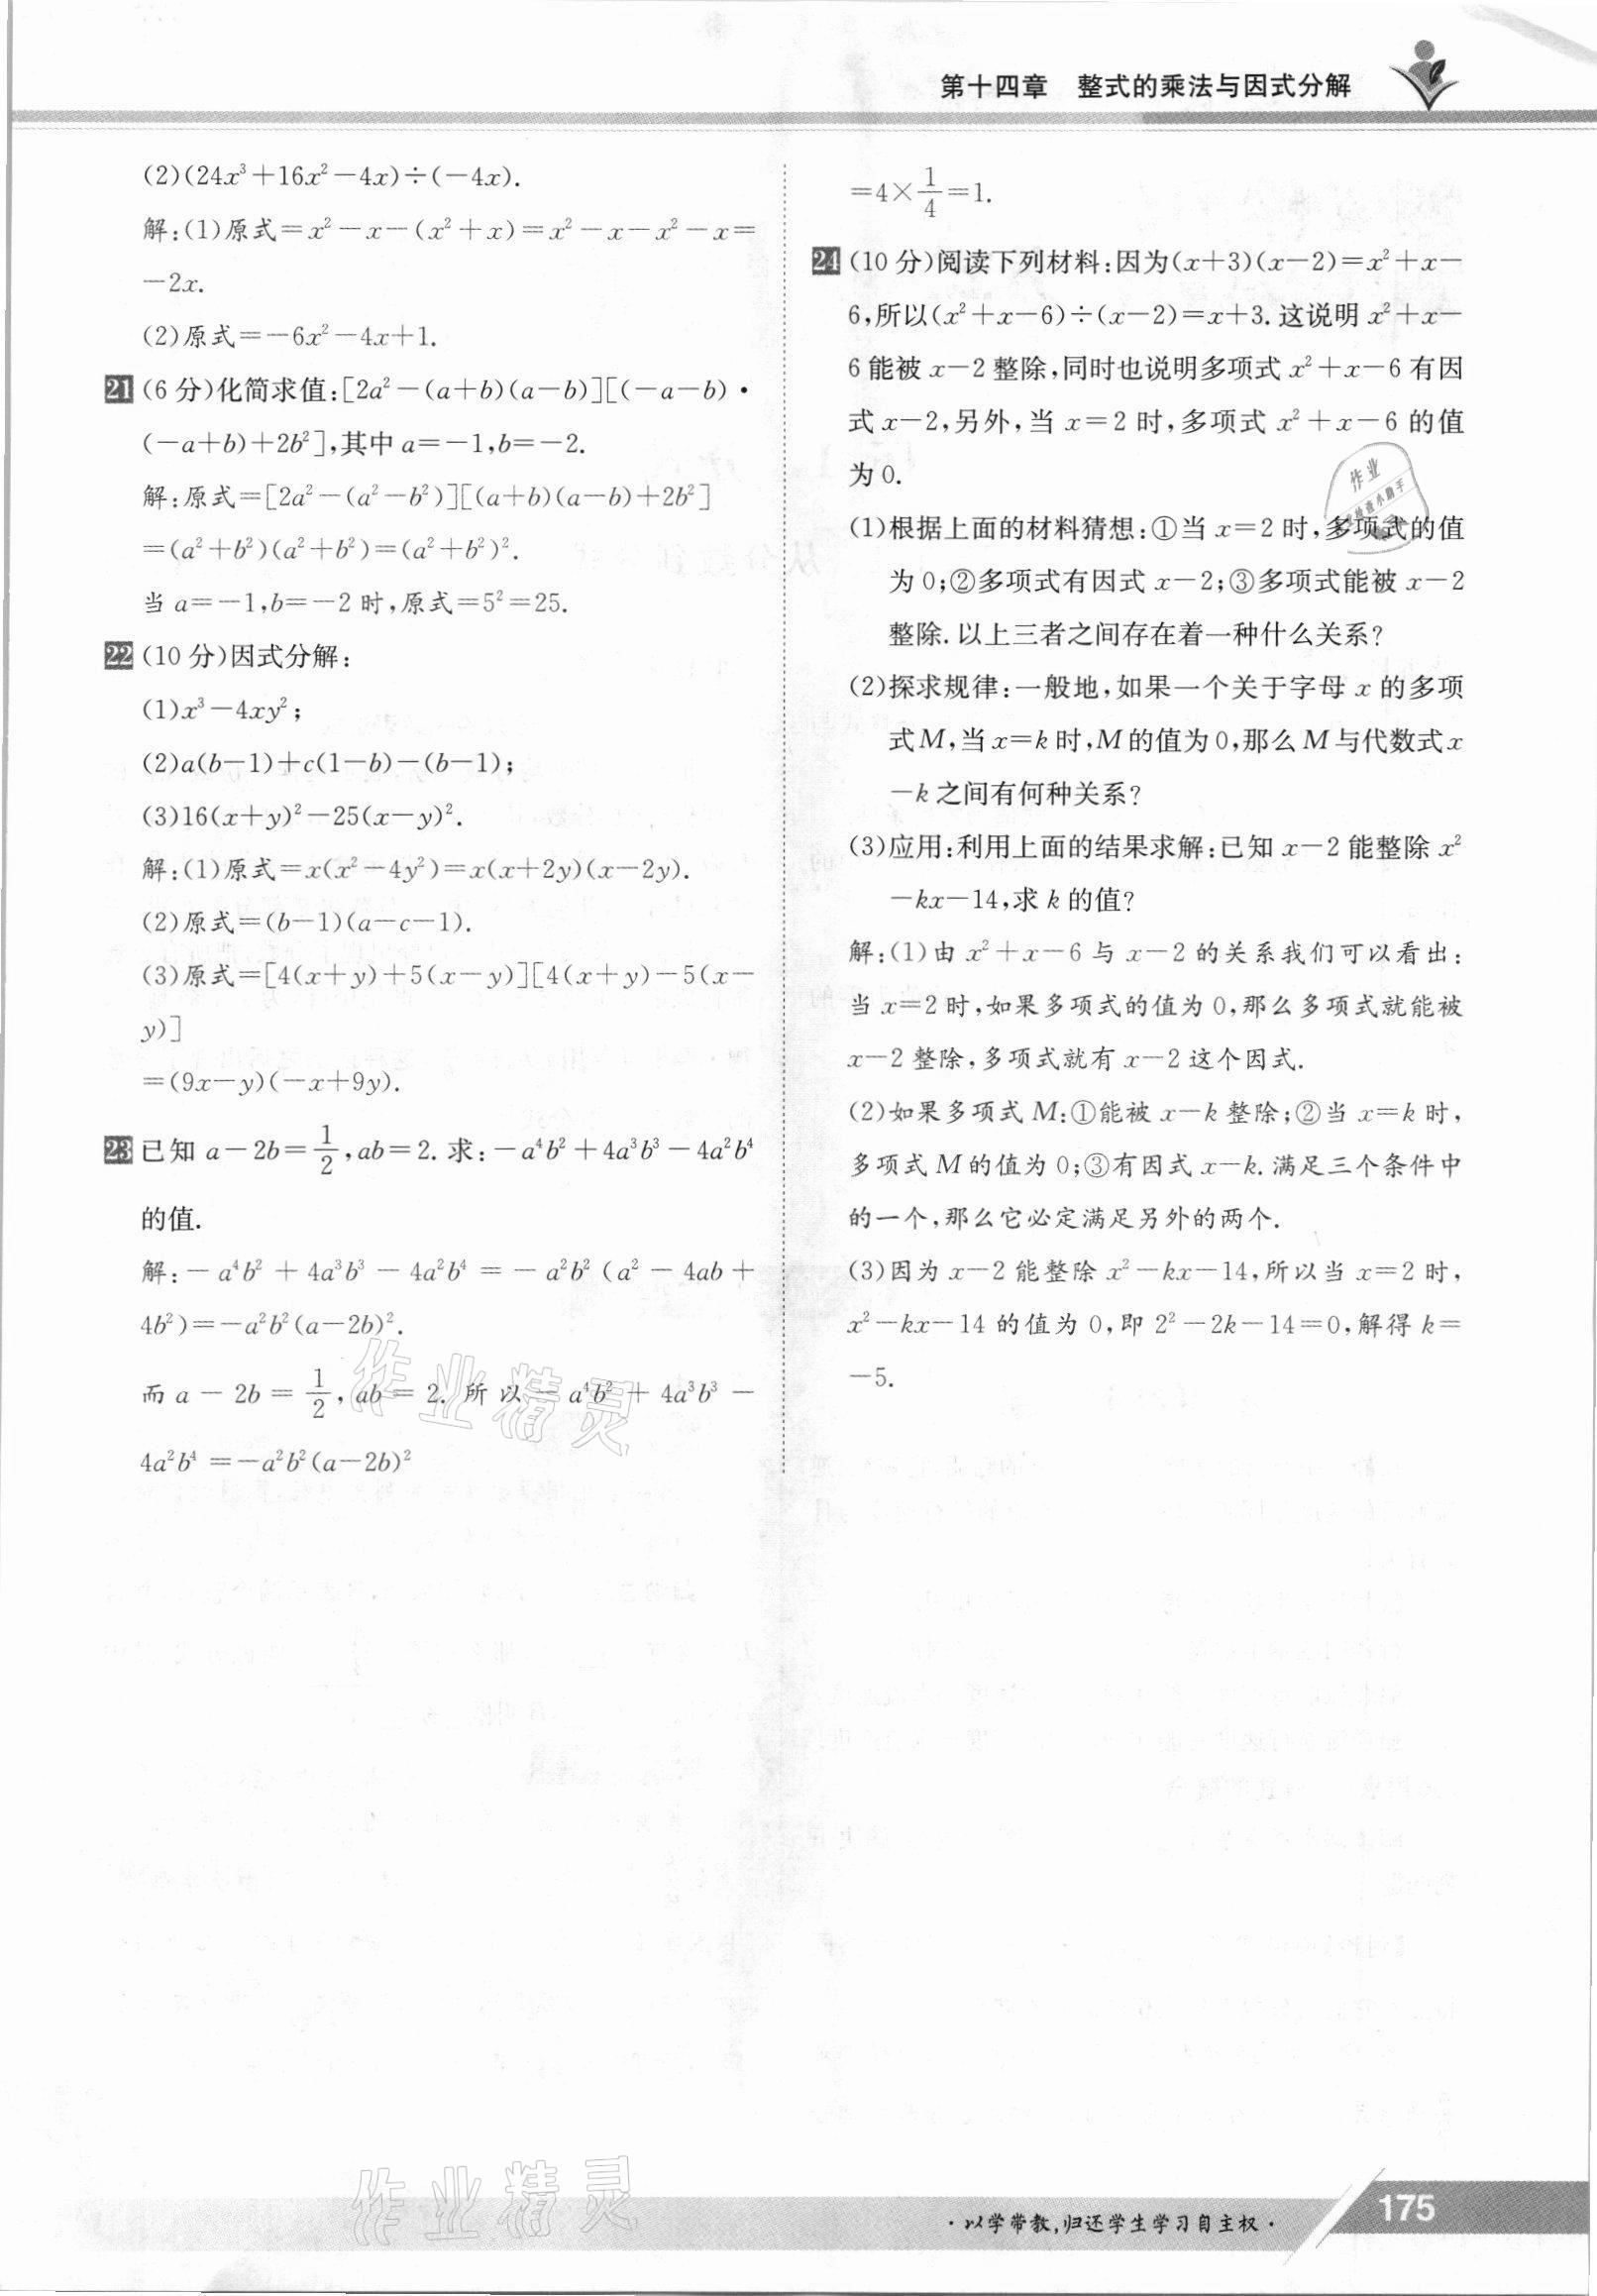 第十四章 整式的乘法与因式分解
(2)(24x³+16x²-4x)÷(-4x).
解:(1)原式=x²-x-(x²+x)=x²-x-x²-x=
-2x.
(2)原式=-6x²-4x+1.
21 (6分)化简求值:[2a²-(a+b)(a-b)][(-a-b)·
(-a+b)+2b²],其中a=-1,b=-2.
解:原式=[2a²-(a²-b²)][(a+b)(a-b)+2b²]
=(a²+b²)(a²+b²)=(a²+b²)².
当a=-1,b=-2时,原式=5²=25.
22 (10分)因式分解:
(1)x³-4xy²;
(2)a(b-1)+c(1-b)-(b-1);
(3)16(x+y)²-25(x-y)².
解:(1)原式=x(x²-4y²)=x(x+2y)(x-2y).
(2)原式=(b-1)(a-c-1).
(3)原式=[4(x+y)+5(x-y)][4(x+y)-5(x-
y)]
=(9x-y)(-x+9y).
23 已知a-2b=1/2,ab=2.求:-a⁴b²+4a³b³-4a²b⁴
的值.
解:-a⁴b²+4a³b³-4a²b⁴=-a²b²(a²-4ab+
4b²)=-a²b²(a-2b)².
而a-2b=1/2,ab=2.所以-a⁴b²+4a³b³-
4a²b⁴=-a²b²(a-2b)²
=4×1/4=1.
24 (10分)阅读下列材料:因为(x+3)(x-2)=x²+x-
6,所以(x²+x-6)÷(x-2)=x+3.这说明x²+x-
6能被x-2整除,同时也说明多项式x²+x-6有因
式x-2,另外,当x=2时,多项式x²+x-6的值
为0.
(1)根据上面的材料猜想:①当x=2时,多项式的值
为0;②多项式有因式x-2;③多项式能被x-2
整除.以上三者之间存在着一种什么关系?
(2)探求规律:一般地,如果一个关于字母x的多项
式M,当x=k时,M的值为0,那么M与代数式x
-k之间有何种关系?
(3)应用:利用上面的结果求解:已知x-2能整除x²
-kx-14,求k的值?
解:(1)由x²+x-6与x-2的关系我们可以看出:
当x=2时,如果多项式的值为0,那么多项式就能被
x-2整除,多项式就有x-2这个因式.
(2)如果多项式M:①能被x-k整除;②当x=k时,
多项式M的值为0;③有因式x-k.满足三个条件中
的一个,那么它必定满足另外的两个.
(3)因为x-2能整除x²-kx-14,所以当x=2时,
x²-kx-14的值为0,即2²-2k-14=0,解得k=
-5.
作业精灵
作业精灵
·以学带教,归还学生学习自主权·
175